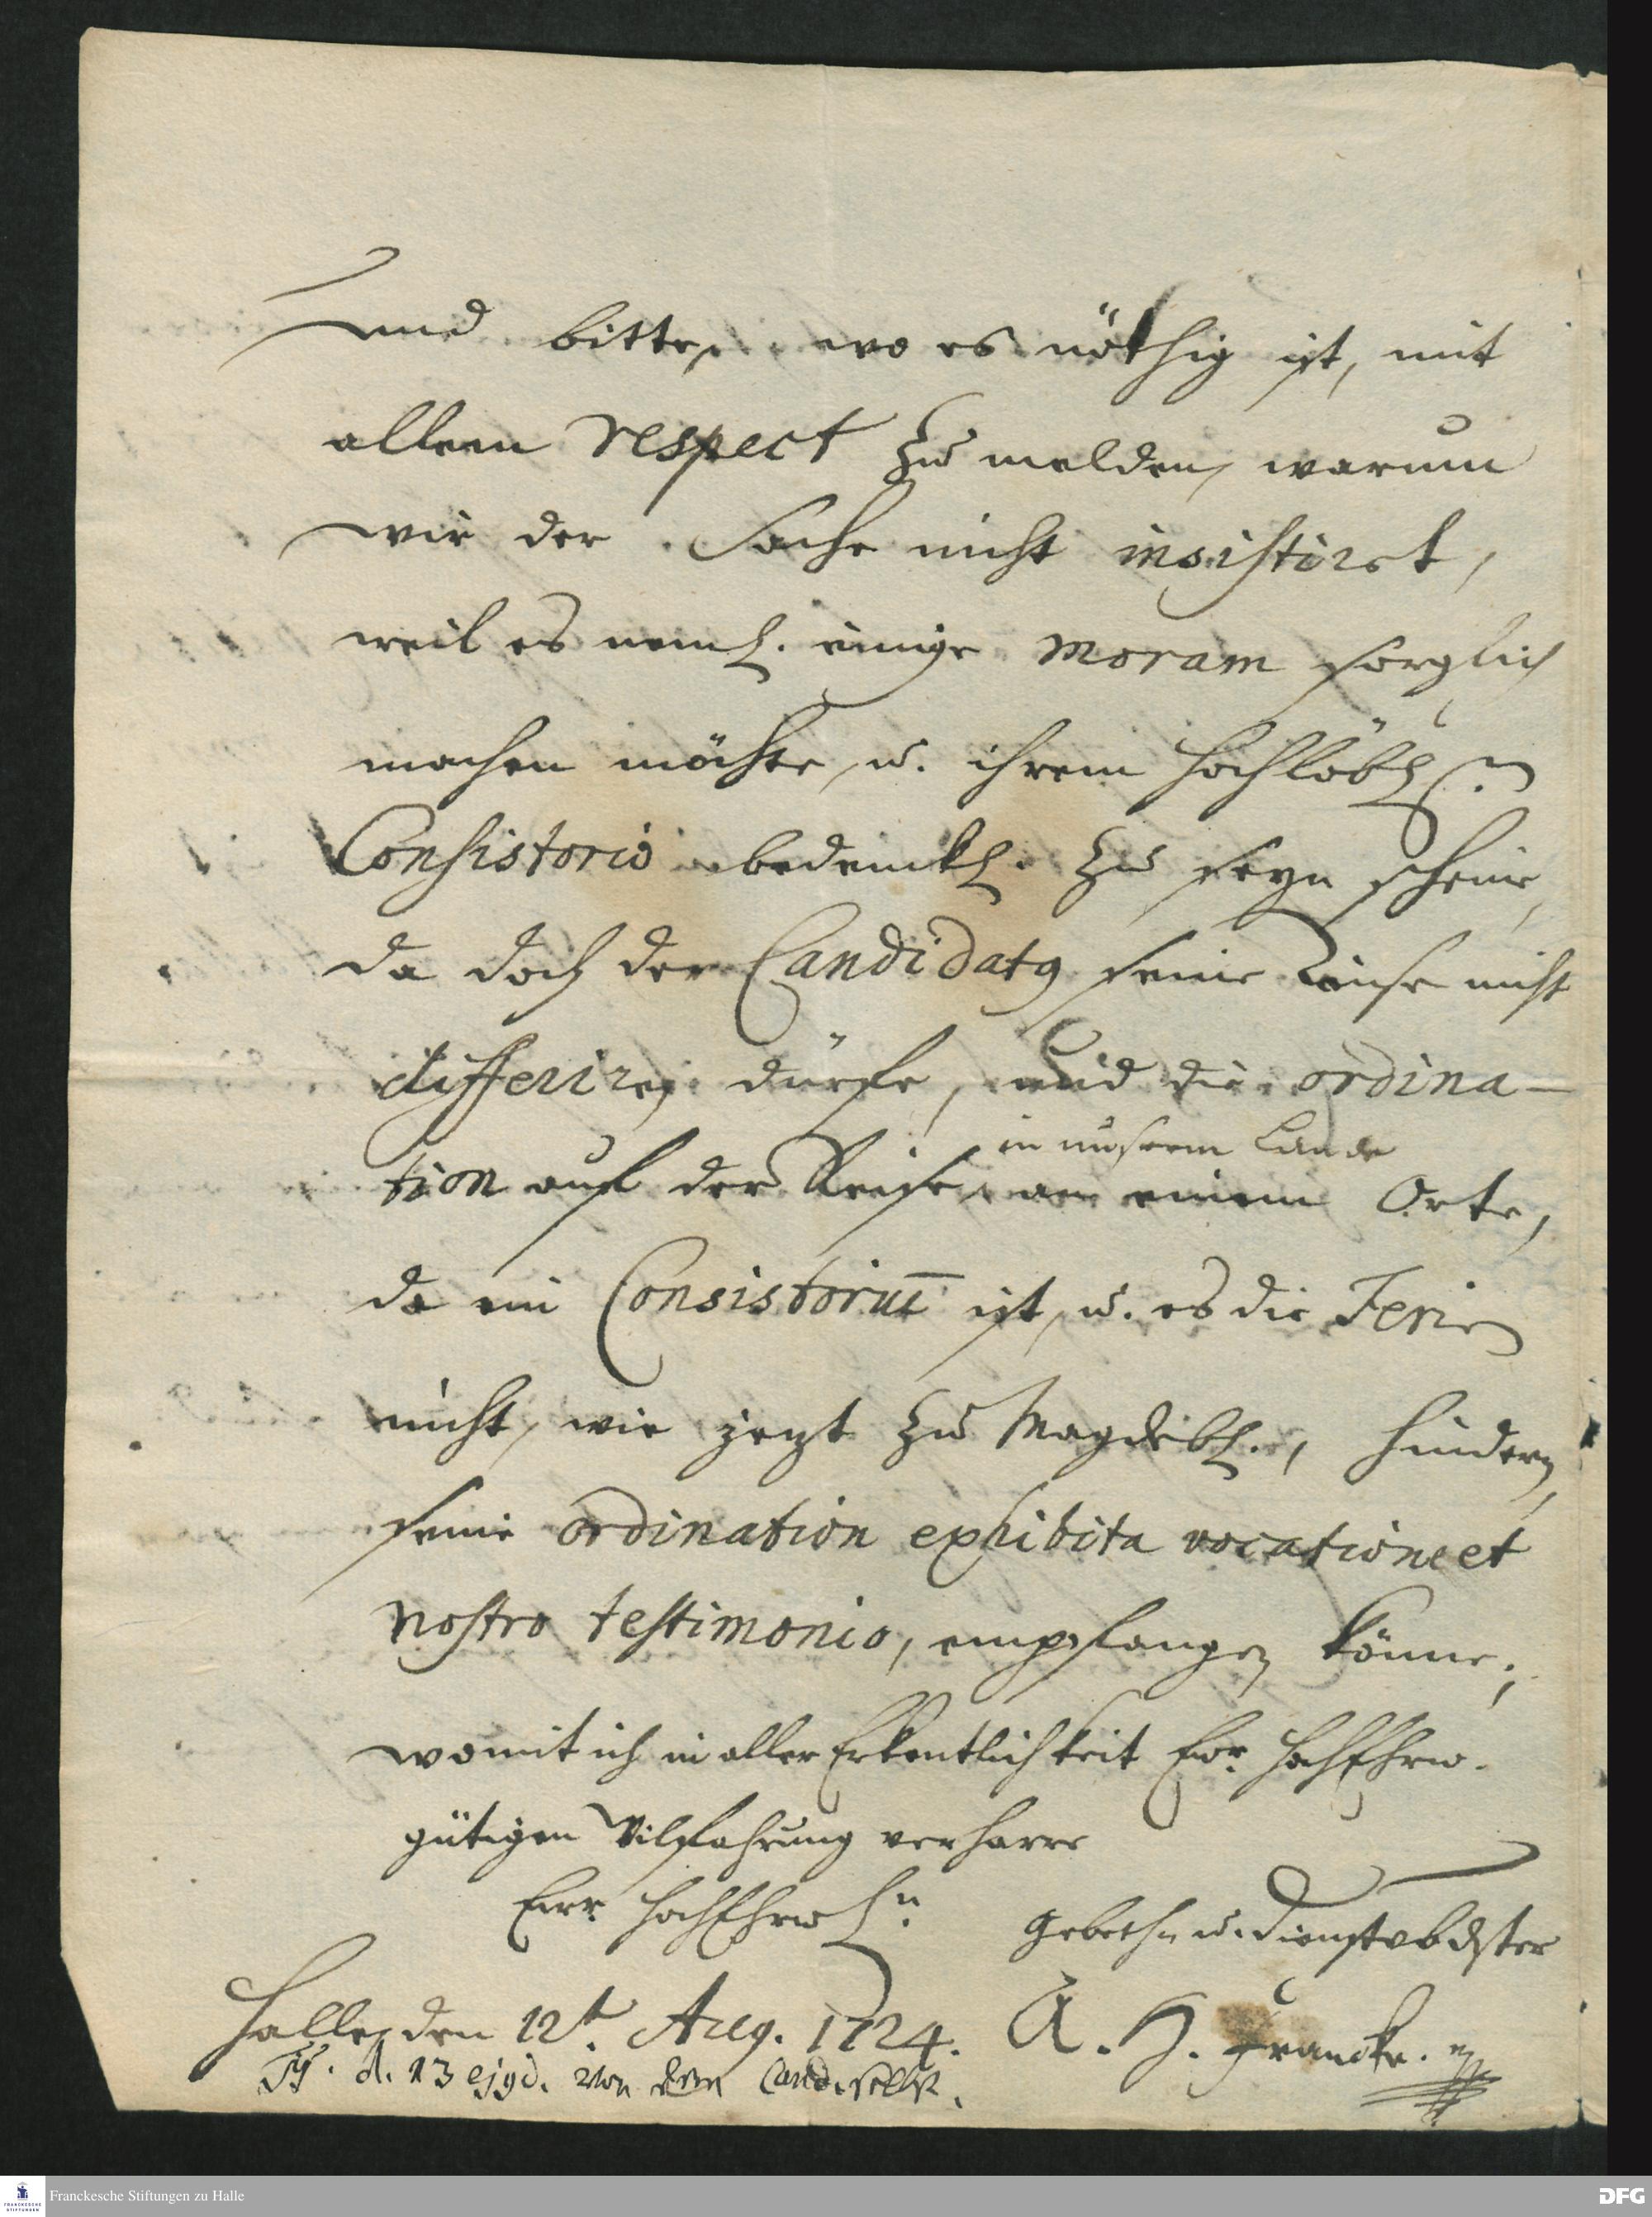 und bitte, wo es nöthig ist, mit
allem respect zu melden, warum
wir der Sache nicht insistiret,
weil es neml. einige moram sorglich
machen möchte, u. ihrem hochlöbl.
Consistorio bedenckl. zu seyn scheine,
da doch der Candidatus seine Reise nicht
differiren dürfe, und die ordina-
tion auf der Reise an einem Orte,
in unserm Lande
da ein Consistorium ist, u. es die Ferien
nicht, wie jezt zu Magdeb., hindern,
seine ordination exhibita vocatione et
nostro testimonio, empfangen könne;
womit ich in aller Erkentlichkeit Ewr. HochEhrw.
gütigen Wilfahrung verharre
Ewr. HochEhrw.
gebeth- u. dienstvbdster
Halle, den 12t. Aug. 1724. A. H. Francke.
d. 13 ejgd. von dem Cand. selbst.
Franckesche Stiftungen zu Halle
DFG